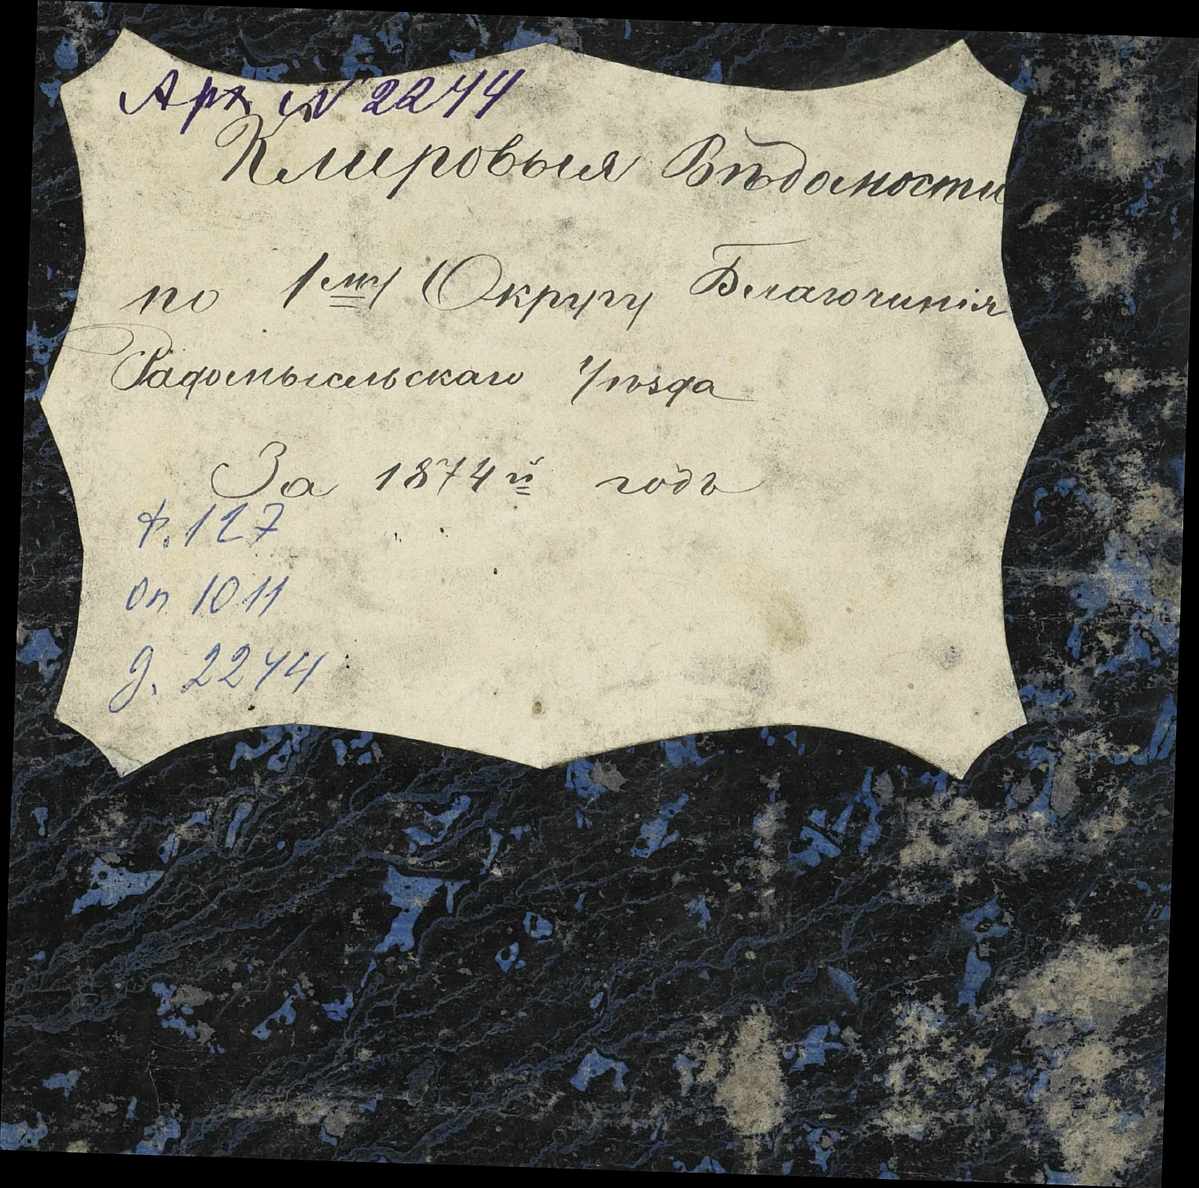 Арх № 2244
Клировыя Вѣдомости
по 1му Округу Благочинія
Радомысльскаго Уѣзда
За 1874й годъ
ф. 127
оп 1011
д. 2244